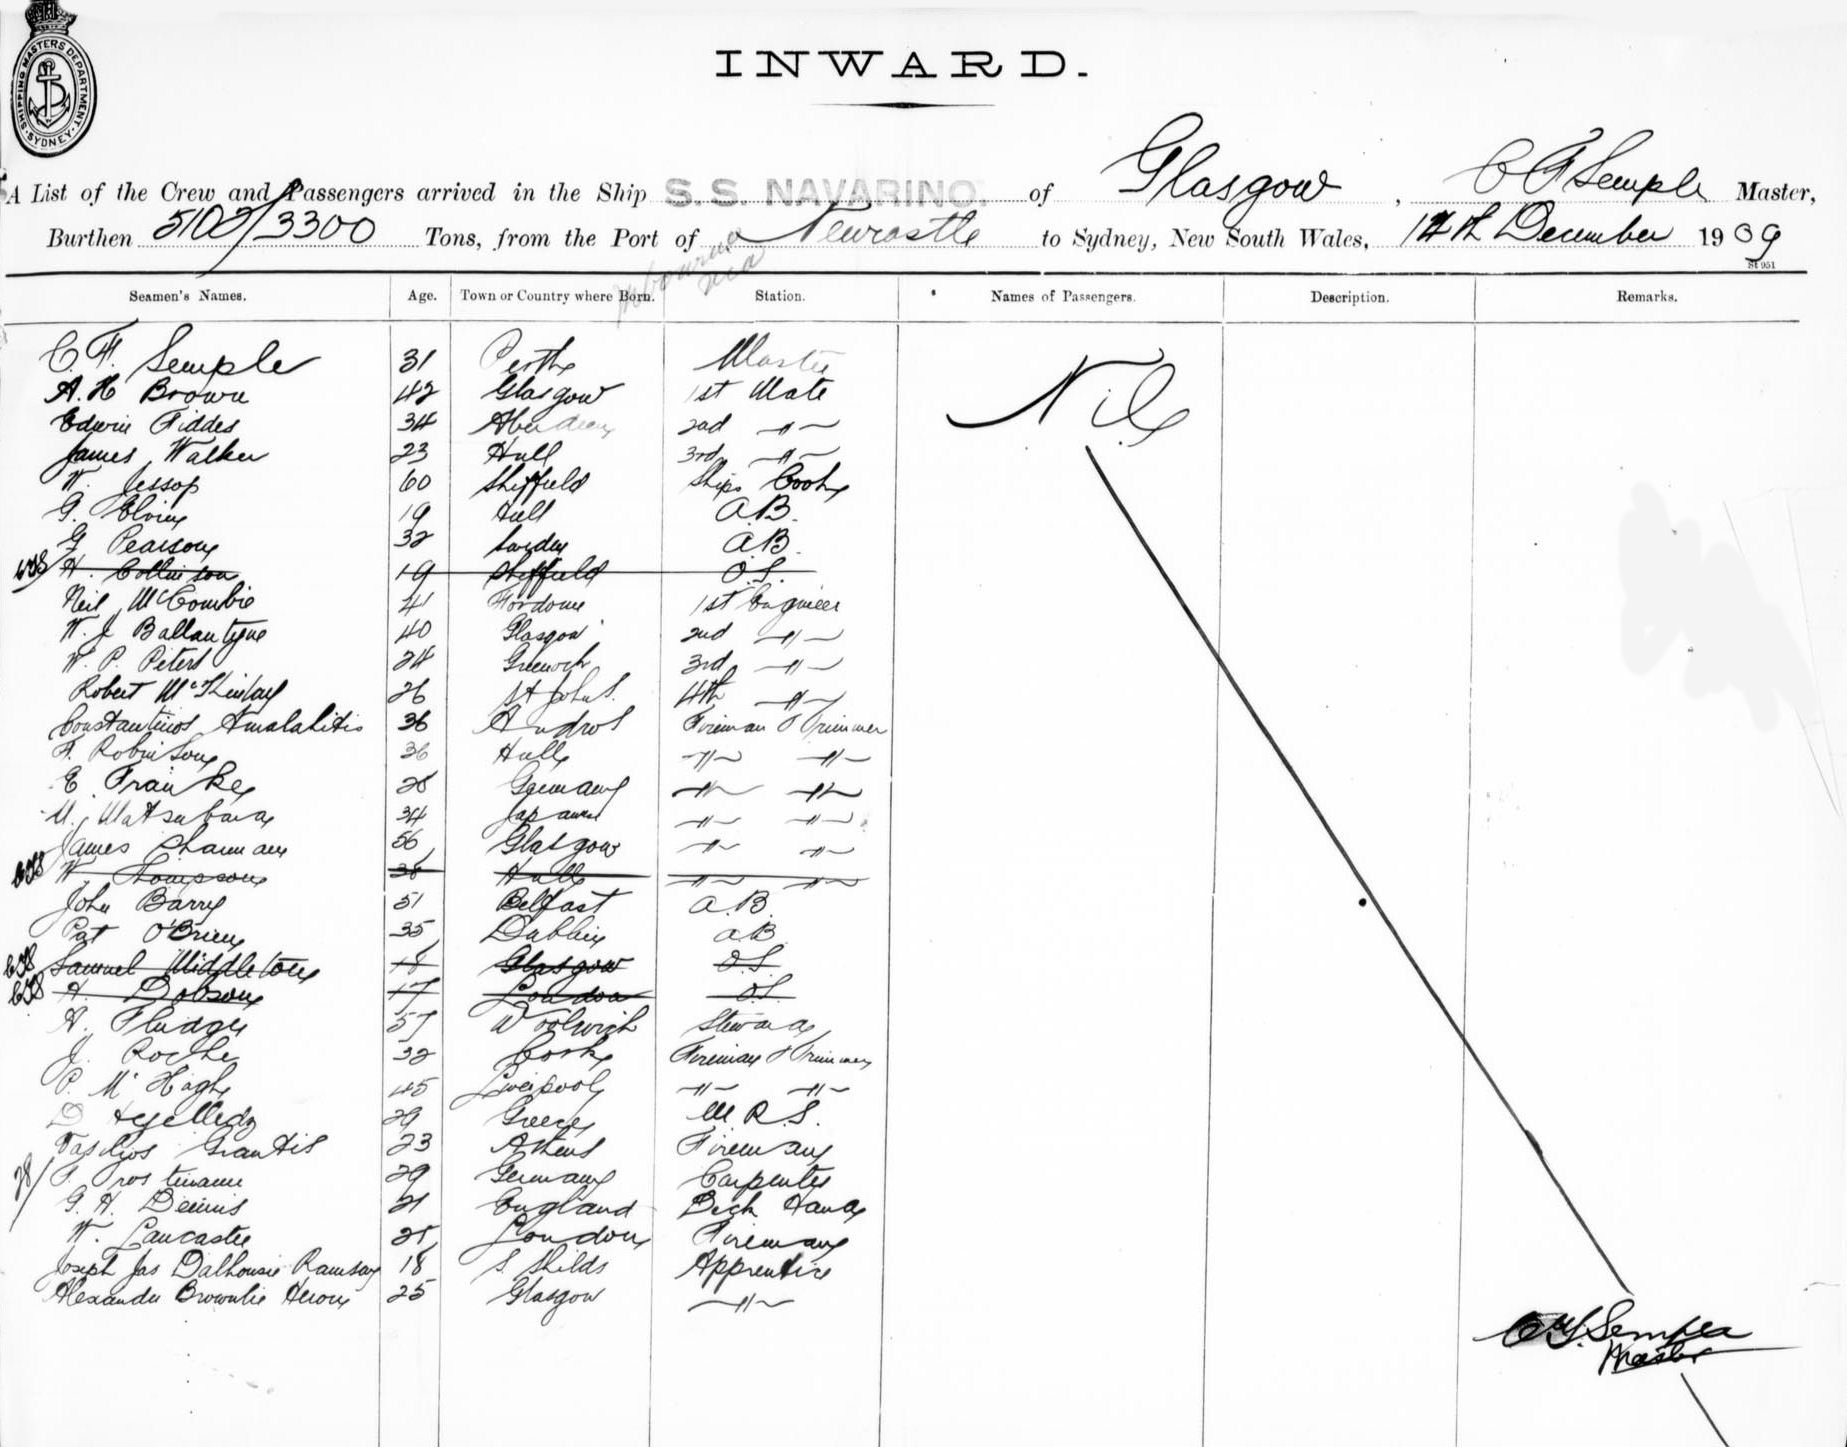 SHIPPING MASTERS DEPARTMENT SYDNEY
INWARD.
A List of the Crew and Passengers arrived in the Ship S.S. NAVARINO. of Glasgow, C F Semple Master,
Burthen 5102/3300 Tons, from the Port of Newcastle to Sydney, New South Wales, 14th December 1909
St 951
Seamen's Names. Age. Town or Country where Born. Station. Names of Passengers. Description. Remarks.
C. F. Semple 31 Perth Master Nil
A. H Brown 42 Glasgow 1st Mate
Edwin Fiddes 34 Aberdeen 2nd -"-
James Walker 23 Hull 3rd -"-
W. Jessop 60 Sheffield Ships Cook
G. Elvin 19 Hull A.B.
G Pearson 32 Sweden A.B.
H. Collinson 19 Sheffield O.S.
Neil McCombie 41 1st Engineer
W. J Ballantyne 40 Glasgow 2nd -"-
W. P. Peters 24 Greenock 3rd -"-
Robert McKinlay 26 St Johns. 4th -"-
Constantinos Amalahitis 36 Andros Fireman & Trimmer
F. Robinson 36 Hull -"- -"-
E. Franke 28 Germany -"- -"-
M. Matsubara 34 Japan -"- -"-
James Sharman 56 Glasgow -"- -"-
W. Thompson 38 Hull -"- -"-
John Barry 51 Belfast A.B.
Pat O'Brien 35 Dublin A.B
Samuel Middleton 18 Glasgow O.S.
H. Dobson 17 London O.S.
A. Fludger 57 Woolwich Steward
J. Roche 32 Cork Fireman & Trimmer
P. McHugh 45 Liverpool -"- -"-
D 29 Greece M.R.S.
Grantis 23 Athens Fireman
28/ F. Prostmann 29 Germany Carpenter
G. H. Dennis 21 England Deck Hand
W. Lancaster 25 London Fireman
Joseph Jas Dalhousie Ramsay 18 S. Shields Apprentice
Alexander Brownlie Heron 25 Glasgow -"-
C F Semple
Master